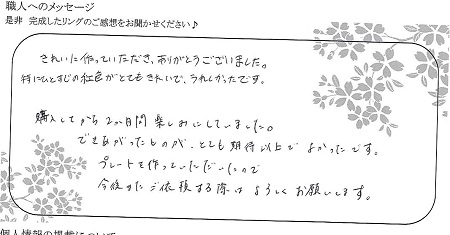 職人へのメッセージ
是非 完成したリングのご感想をお聞かせください♪
きれいに作っていただき、ありがとうございました。
特にひとすじの紅色がとてもきれいで、うれしかったです。
購入してから2か月間楽しみにしていました。
できあがったものが、とても期待以上でよかったです。
プレートを作っていただいたので
今後またご依頼する際はよろしくお願いします。
個人情報の掲載について